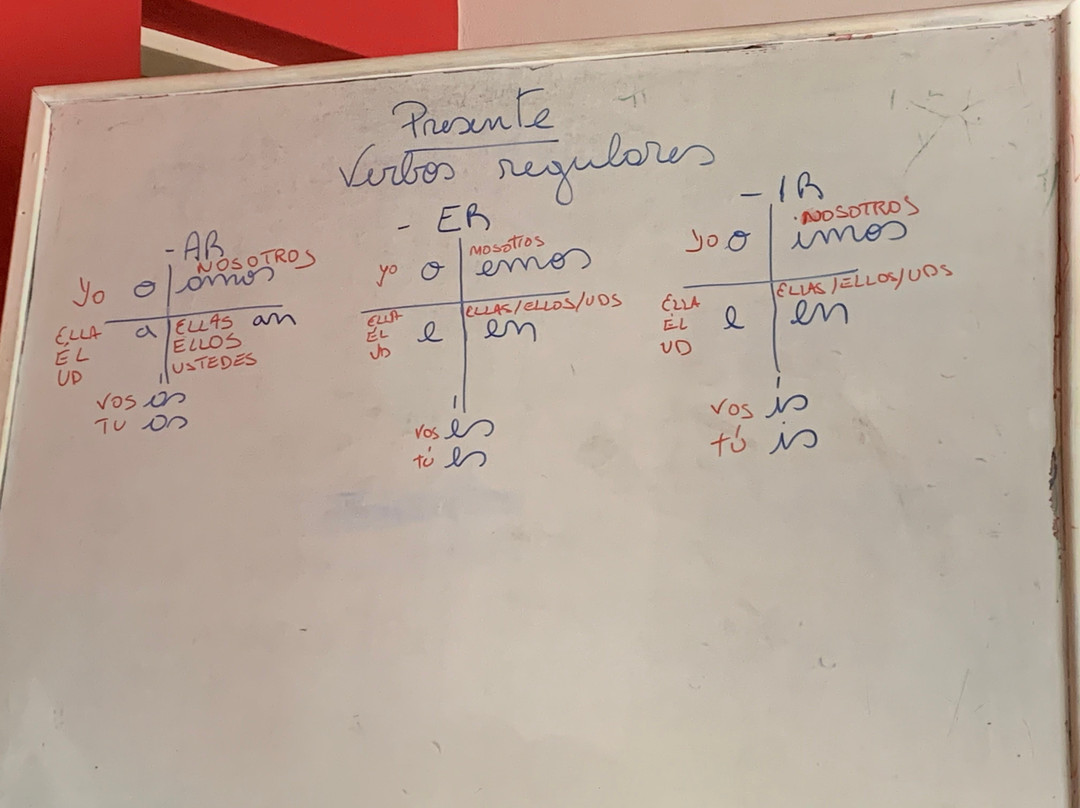 Presente
Verbos regulares
-AR
NOSOTROS
yo o amos
ELLA a ELLAS an
ÉL ELLOS
UD USTEDES
VOS ás
TU as
- ER
NOSOTROS
yo o emos
ELLAS/ELLOS/UDS
ELLA
ÉL e en
UD
VOS és
tú es
- IR
NOSOTROS
yo o imos
ELLAS/ELLOS/UDS
ELLA
ÉL e en
UD
VOS ís
tú is